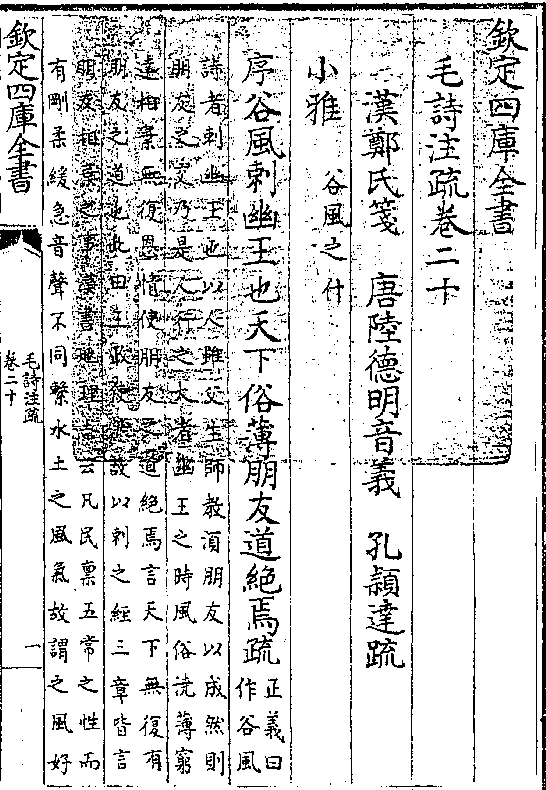 欽定四庫全書
毛詩注疏卷二十
漢鄭氏箋 唐陸德明音義 孔頴達疏
小雅 谷風之什
序谷風刺幽王也天下俗薄朋友道絶焉疏正義曰作谷風
詩者刺幽王也以人雖父生師教須朋友以成然則
朋友之交乃是人行之大者幽王之時風俗澆薄窮
達相棄無復恩情使朋友之道絶焉言天下無復有
朋友之道也此由王政使然故以刺之經三章皆言
朋友相棄之事漢書地理志云凡民稟五常之性而
有剛柔緩急音聲不同繫水土之風氣故謂之風好
欽定四庫全書
毛詩注疏
卷二十
一